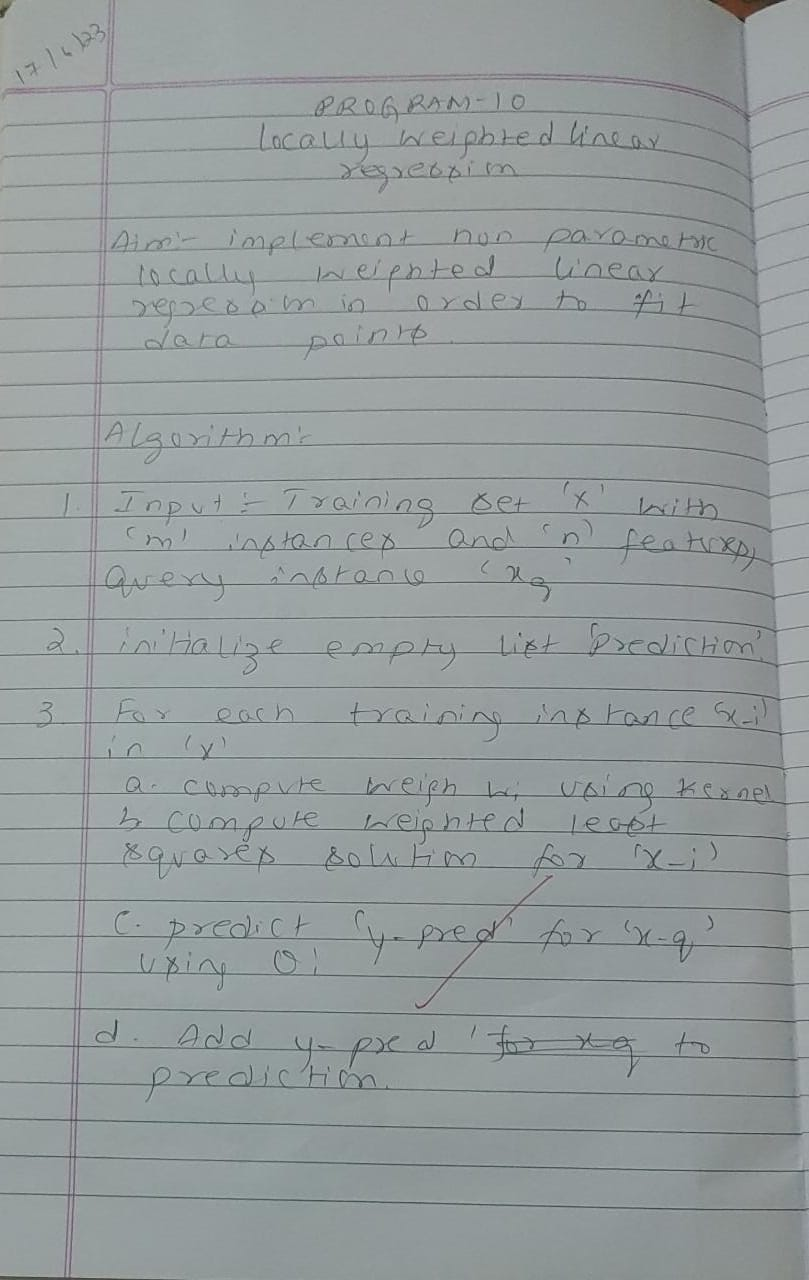 17/6/23
PROGRAM-10
locally weighted linear
regression
Aim:- implement non parametric
locally weighted linear
regression in order to fit
data points.
Algorithm:-
1. Input :- Training set 'x' with
'm' instances and 'n' features,
Query instance 'xq'
2. initialize empty list 'prediction'.
3. For each training instance 'x-i'
in 'x'
a. compute weigh wi using kernel
b. compute weighted least
squares solution for 'x-i'
c. predict 'y-pred' for 'x-q'
using θi
d. Add y-pred ' for xq to
prediction.